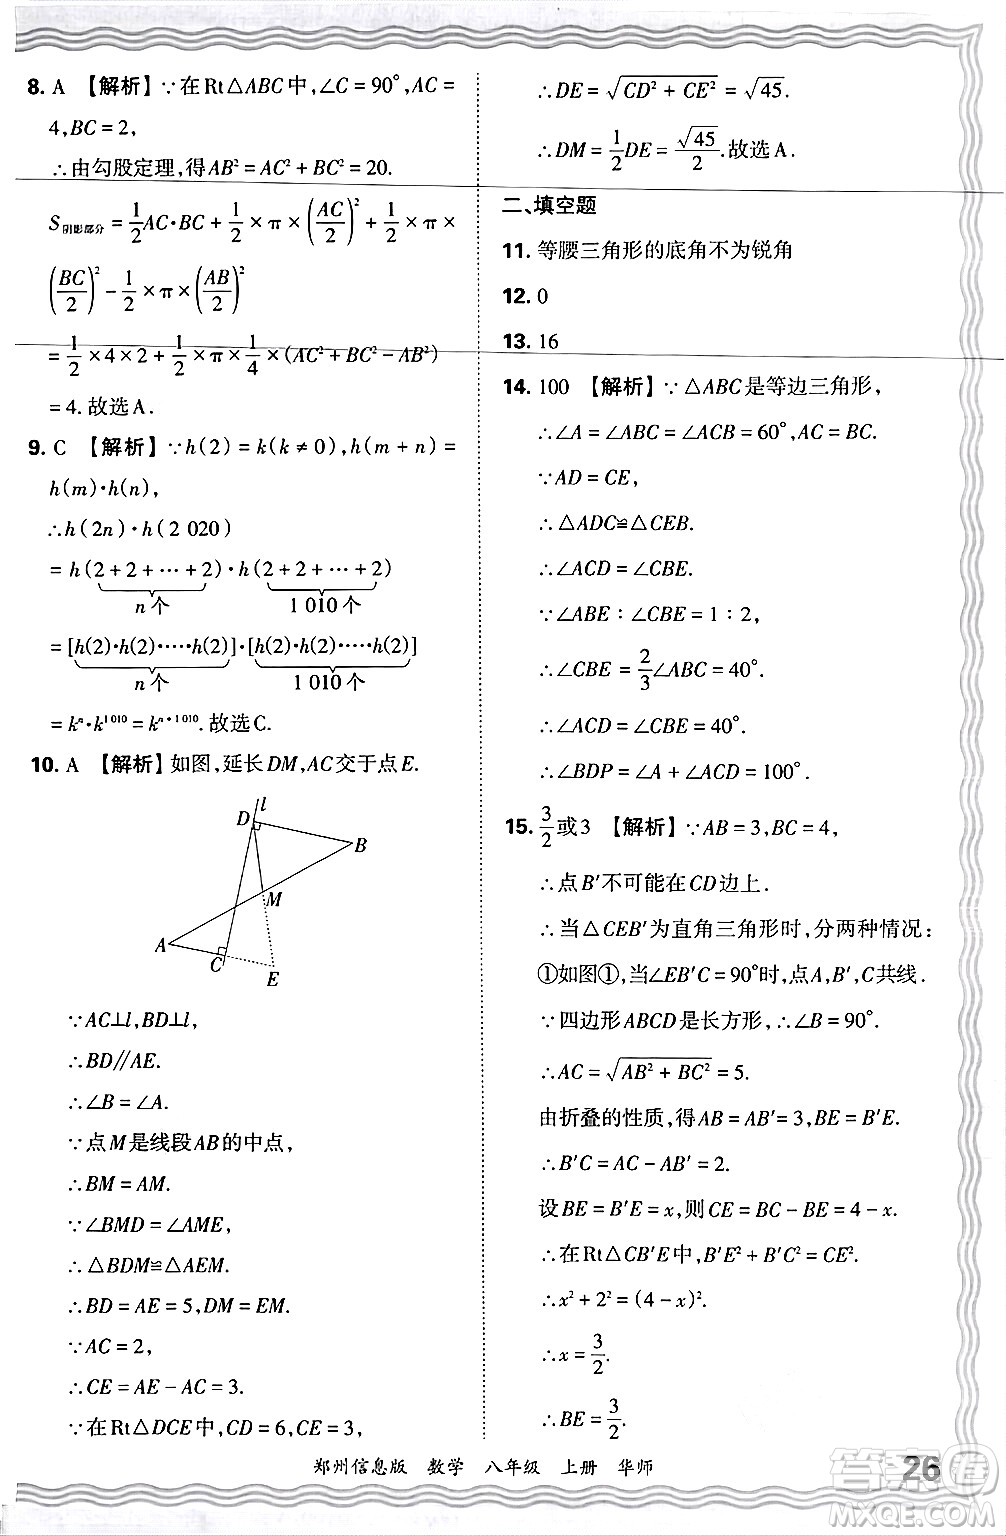 8. A 【解析】∵在Rt△ABC中,∠C=90°,AC=
4,BC=2,
∴由勾股定理,得AB²=AC²+BC²=20.
S阴影部分=\frac{1}{2}AC·BC+\frac{1}{2}×π×(\frac{AC}{2})²+\frac{1}{2}×π×
(\frac{BC}{2})²-\frac{1}{2}×π×(\frac{AB}{2})²
=\frac{1}{2}×4×2+\frac{1}{2}×π×\frac{1}{4}×(AC²+BC²-AB²)
=4.故选A.
9. C 【解析】∵h(2)=k(k≠0),h(m+n)=
h(m)·h(n),
∴h(2n)·h(2 020)
=h(2+2+…+2)·h(2+2+…+2)
n个 1 010个
=[h(2)·h(2)·…·h(2)]·[h(2)·h(2)·…·h(2)]
n个 1 010个
=kⁿ·k¹⁰¹⁰=kⁿ⁺¹⁰¹⁰.故选C.
10. A 【解析】如图,延长DM,AC交于点E.
l
D
B
M
A
C
E
∵AC⊥l,BD⊥l,
∴BD∥AE.
∴∠B=∠A.
∵点M是线段AB的中点,
∴BM=AM.
∵∠BMD=∠AME,
∴△BDM≌△AEM.
∴BD=AE=5,DM=EM.
∵AC=2,
∴CE=AE-AC=3.
∵在Rt△DCE中,CD=6,CE=3,
∴DE=\sqrt{CD²+CE²}=\sqrt{45}.
∴DM=\frac{1}{2}DE=\frac{\sqrt{45}}{2}.故选A.
二、填空题
11. 等腰三角形的底角不为锐角
12. 0
13. 16
14. 100 【解析】∵△ABC是等边三角形,
∴∠A=∠ABC=∠ACB=60°,AC=BC.
∵AD=CE,
∴△ADC≌△CEB.
∴∠ACD=∠CBE.
∵∠ABE∶∠CBE=1∶2,
∴∠CBE=\frac{2}{3}∠ABC=40°.
∴∠ACD=∠CBE=40°.
∴∠BDP=∠A+∠ACD=100°.
15. \frac{3}{2}或3 【解析】∵AB=3,BC=4,
∴点B′不可能在CD边上.
∴当△CEB′为直角三角形时,分两种情况:
①如图①,当∠EB′C=90°时,点A,B′,C共线.
∵四边形ABCD是长方形,∴∠B=90°.
∴AC=\sqrt{AB²+BC²}=5.
由折叠的性质,得AB=AB′=3,BE=B′E.
∴B′C=AC-AB′=2.
设BE=B′E=x,则CE=BC-BE=4-x.
∴在Rt△CB′E中,B′E²+B′C²=CE².
∴x²+2²=(4-x)².
∴x=\frac{3}{2}.
∴BE=\frac{3}{2}.
郑州信息版 数学 八年级 上册 华师
26
答案圈
MXQE.COM